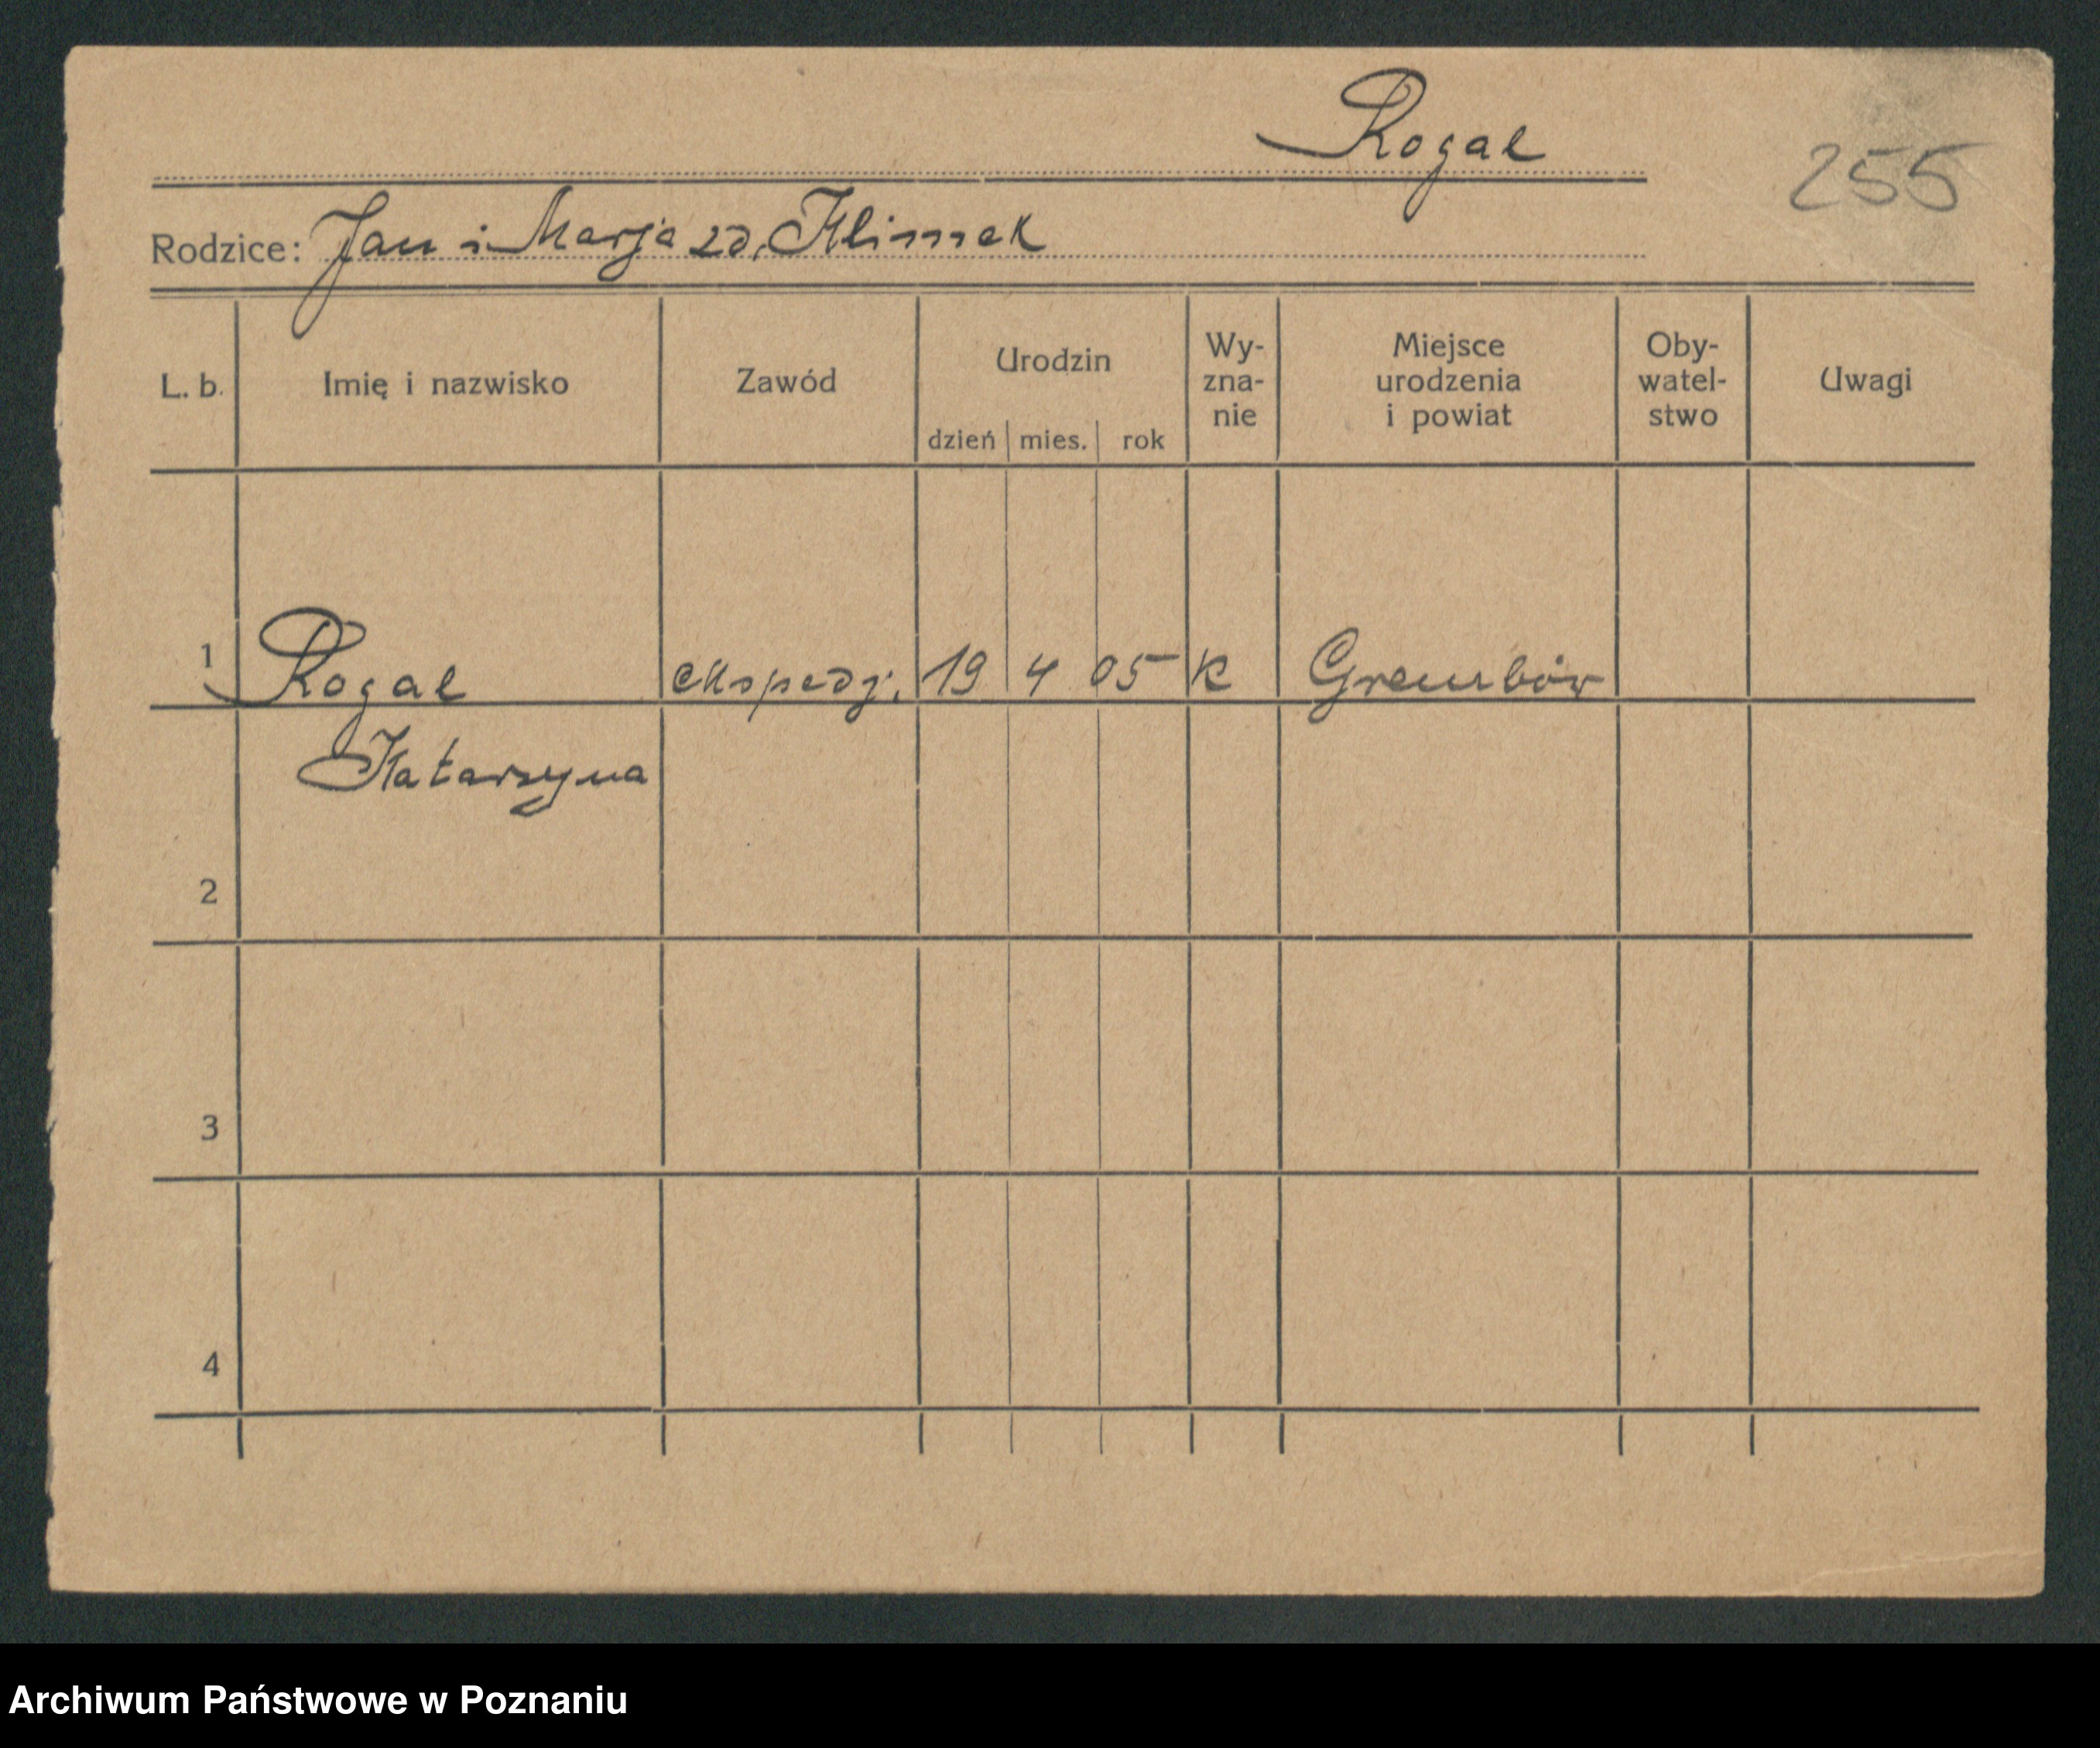 Rogal
255
Rodzice: Jan i Marja zd. Klimek
L. b.
Imię i nazwisko
Zawód
Urodzin
dzień
mies.
rok
Wy-
zna-
nie
Miejsce
urodzenia
i powiat
Oby-
watel-
stwo
Uwagi
1 Rogal ekspedj. 19 4 05 K Grembów
Katarzyna
2
3
4
Archiwum Państwowe w Poznaniu